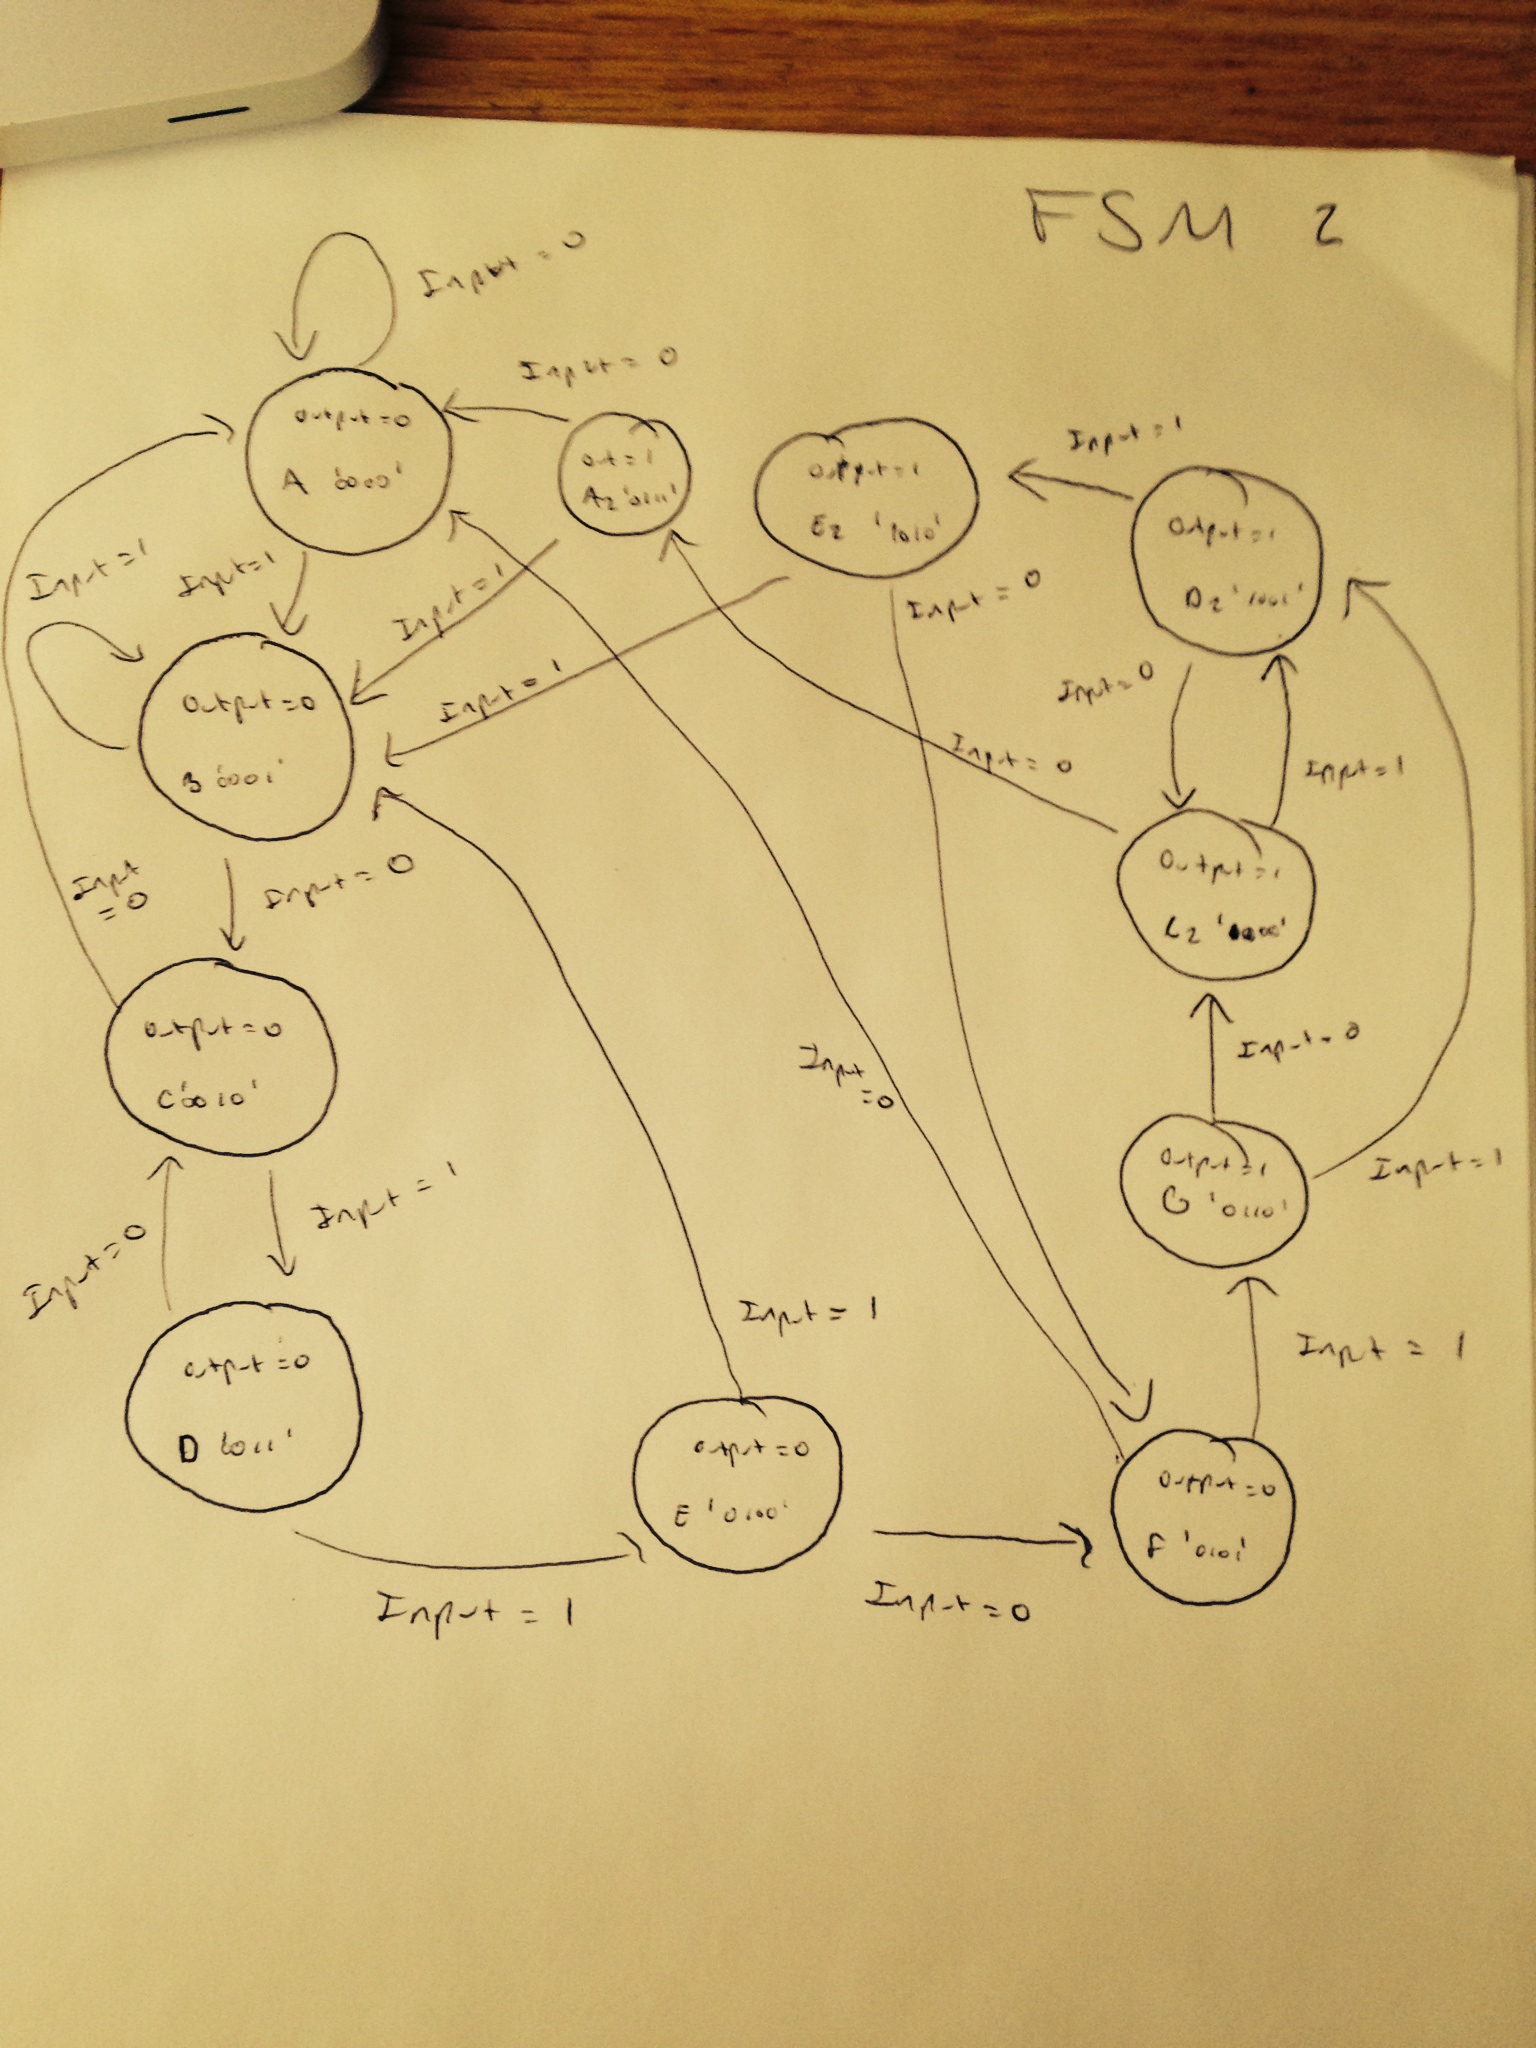 FSM 2
Input = 0
Input = 0
Output = 0
A '0000'
Out = 1
A2 '0111'
Output = 1
E2 '1010'
Input = 1
Output = 1
D2 '1001'
Input = 1
Input = 1
Input = 1
Input = 0
Input = 1
Input = 0
Output = 0
B '0001'
Input = 0
Input = 1
Output = 1
C2 '1000'
Input
= 0
Input = 0
Output = 0
C '0010'
Input
= 0
Input = 0
Output = 1
G '0110'
Input = 1
Input = 1
Input = 0
Output = 0
D '0011'
Input = 1
Input = 1
Output = 0
E '0100'
Output = 0
F '0101'
Input = 1
Input = 0